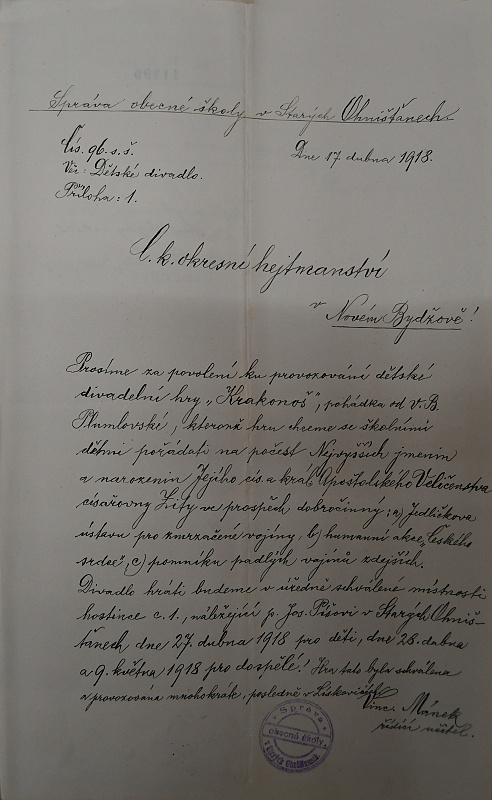 Správa obecné školy v Starých Ohništanech.
Čís. 96. s. š.
Dne 17. dubna 1918.
Věc: Dětské divadlo.
Příloha: 1.
C. k. okresní hejtmanství
v Novém Bydžově!
Prosíme za povolení ku provozování dětské
divadelní hry „Krakonoš", pohádka od V. B.
Plumlovské, kteroužto hru chceme se školními
dětmi pořádati na počest Nejvyšších jmenin
a narozenin Jejího cís. a král. Apoštolského Veličenstva
císařovny Zity ve prospěch dobročinný: a) Jedličkova
ústavu pro zmrzačené vojíny, b) humanní akce „Českého
srdce", c) pomníku padlých vojínů zdejších.
Divadlo hráti budeme v úředně schválené místnosti
hostince č. 1., náležející p. Jos. Píšovi v Starých Ohniš-
tanech, dne 27. dubna 1918 pro děti, dne 28. dubna
a 9. května 1918 pro dospělé! Hra tato byla schválena
a provozována mnohokrát, posledně v Lískovicích.
Vinc. Mánek
řídící učitel.
Správa
obecné školy
v Starých Ohništanech